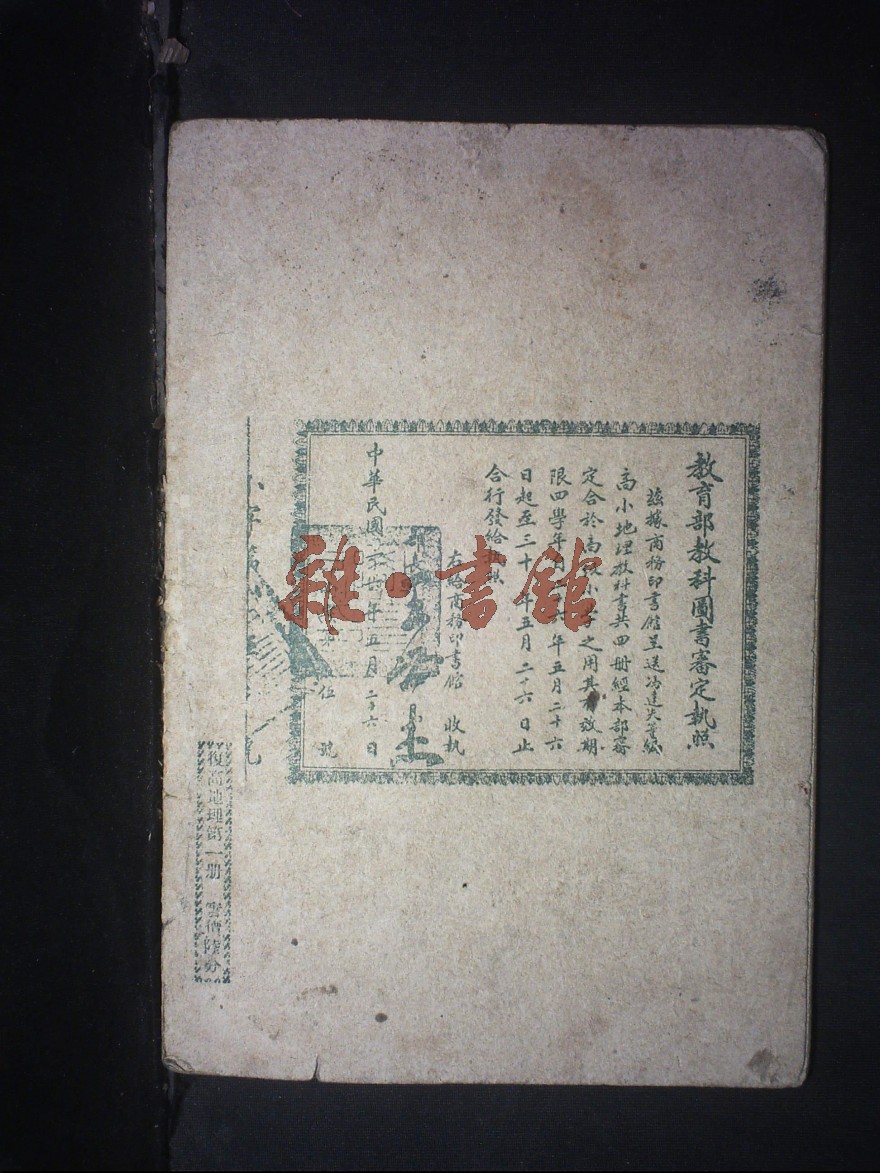 教育部教科圖書審定執照
茲據商務印書館呈送馮達夫等編
高小地理教科書共四冊經本部審
定合於高級小學之用其有效期
限四學年自 六年五月二十六
日起至三十 年五月二十六日止
合行發給執照
右給商務印書館 收執
部長
中華民國二十六年五月二十六日
伍 號
復高地理第一册 實價陸分
雜·書館